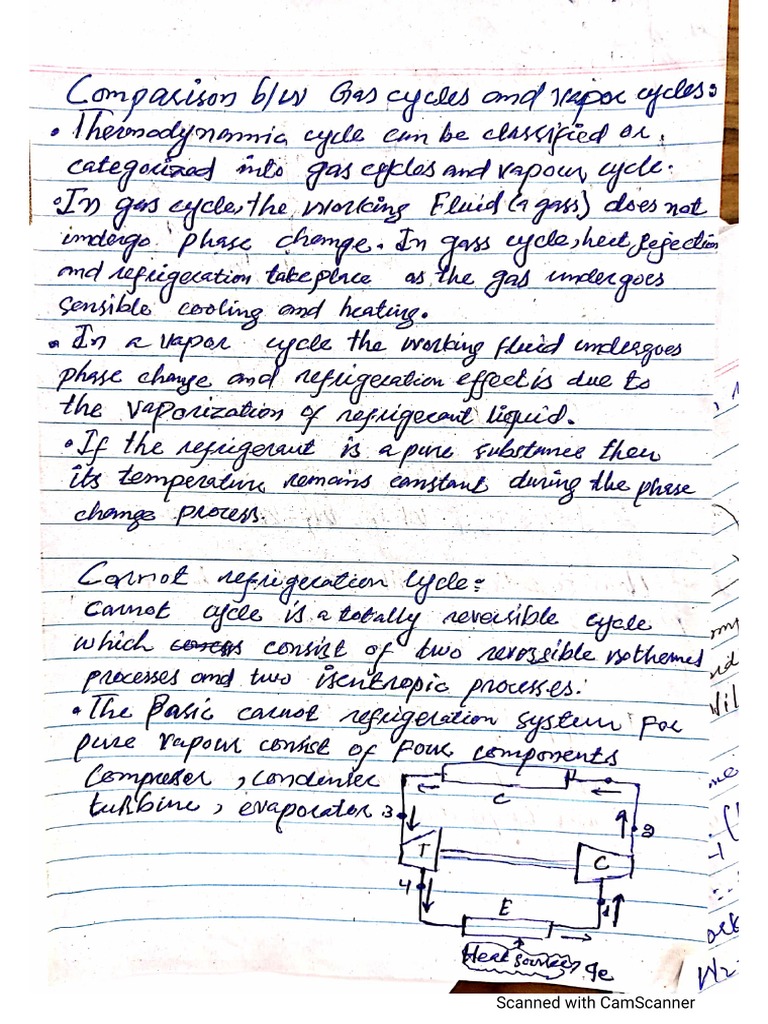 Comparison b/w Gas cycles and vapor cycles:
• Thermodynamic cycle can be classified or
categorized into gas cycles and vapour cycle.
• In gas cycle, the working Fluid (a gass) does not
undergo phase change. In gass cycle, heat rejection
and refrigeration take place as the gas undergoes
sensible cooling and heating.
• In a vapor cycle the working fluid undergoes
phase change and refrigeration effect is due to
the vaporization of refrigerant liquid.
• If the refrigerant is a pure substance then
its temperature remains constant during the phase
change process.
Carnot refrigeration Cycle:
Carnot cycle is a totally reversible cycle
which consist of two reversible isothemed
processes and two isentropic processes.
• The Basic carnot refrigeration system for
pure vapour consist of four components
Compresor, condenser
turbine, evaporator.
C
3
2
T
C
4
1
E
Heat source qe
Scanned with CamScanner